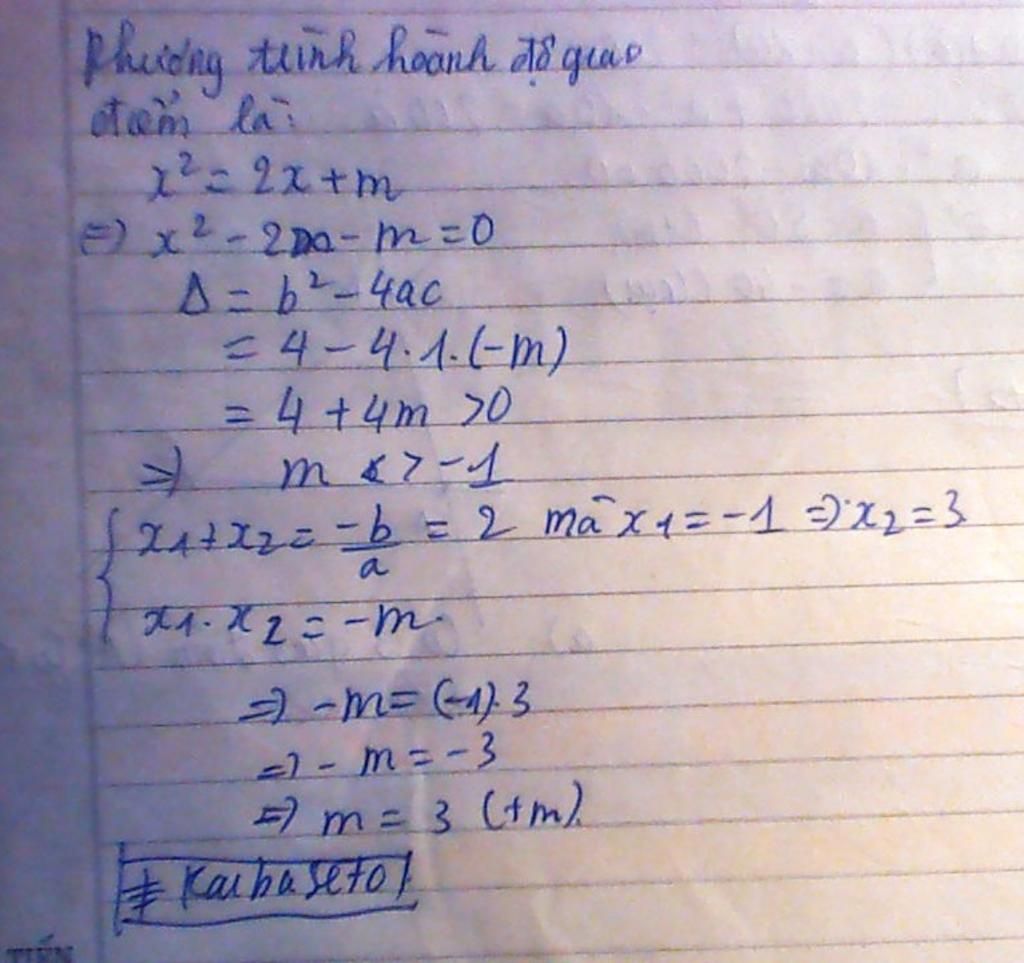 Phương trình hoành độ giao
điểm là:
x² = 2x + m
=> x² - 2x - m = 0
Δ = b² - 4ac
= 4 - 4.1.(-m)
= 4 + 4m > 0
=> m > -1
{ x₁ + x₂ = -b/a = 2 mà x₁ = -1 => x₂ = 3
x₁. x₂ = -m.
=> -m = (-1).3
=> -m = -3
=> m = 3 (tm).
# Kaiba seto
TIẾN